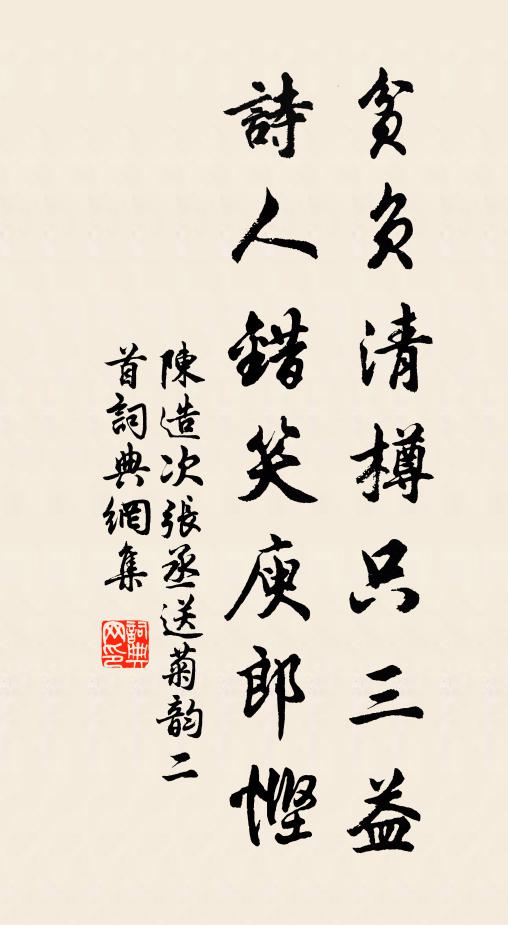 貧負清樽只三益
詩人錯笑庾郎慳
陳造次張丞送菊韵二
首詞典網集
詞典网印